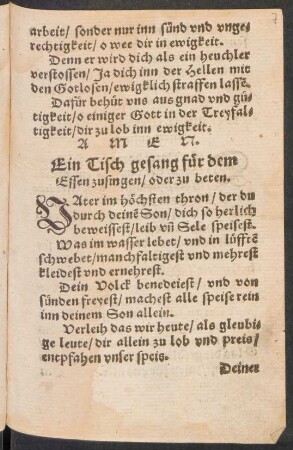 arbeit / sonder nur inn sünd vnd vnge-
rechtigkeit / o wee dir in ewigkeit.
Denn er wird dich als ein heuchler
verstossen / Ja dich inn der Hellen mit
den Gotlosen / ewigklich straffen lassē.
Dafür behüt vns aus gnad vnd gü-
tigkeit / o einiger Gott in der Treyfal-
tigkeit / dir zu lob inn ewigkeit.
A M E N.
Ein Tisch gesang für dem
Essen zusingen / oder zu beten.
VAter im höchsten thron / der du
durch deinē Son / dich so herlich
beweissest / leib vñ Sele speisest.
Was im wasser lebet / vnd in lüfftē
schwebet / manchfaltigest vnd mehrest
kleidest vnd ernehrest.
Dein Volck benedeiest / vnd von
sünden freyest / machest alle speise rein
inn deinem Son allein.
Verleih das wir heute / als gleubi-
ge leute / dir allein zu lob vnd preis /
entpfahen vnser speis.
Deiner